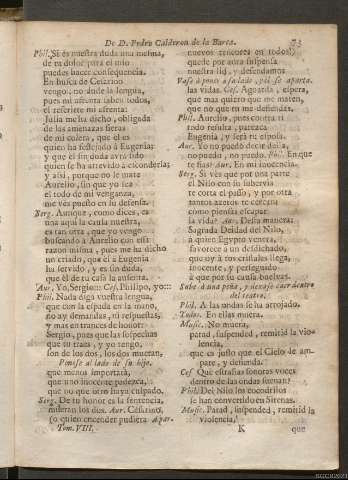 De D. Pedro Calderon de la Barca. 73
Phil. Si es nuestra duda una mesma,
de tu dolor para el mio
puedes hacer consequencia.
En busca de Cesarino
vengo, no dude la lengua,
pues mi afrenta saben todos,
el referirte mi afrenta:
Julia me ha dicho, obligada
de las amenazas fieras
de mi colera, que él es
quien ha festejado à Eugenia;
y que él sin duda ha sido
quien se ha atrevido à esconderla;
y asi, porque no le mate
Aurelio, sin que yo sea
el todo de mi venganza,
me ves puesto en su defensa.
Serg. Aunque, como dices, es
una aqui la causa nuestra,
es tan otra, que yo vengo
buscando à Aurelio con esta
razon misma, pues me ha dicho
un criado, que él à Eugenia
ha servido, y es sin duda,
que él de tu casa la ausenta.
Aur. Yo, Sergio:: Ces. Philipo, yo::
Phil. Nada diga vuestra lengua,
que con la espada en la mano,
no ay demandas, ni respuestas,
y mas en trances de honor:
Sergio, pues que las sospechas
que tu traes, y yo tengo,
son de los dos, los dos mueran.
Ponese al lado de su hijo.
que menos importará,
que uno inocente padezca,
que no que otro huya culpado.
Serg. De tu honor es la sentencia,
mueran los dos. Aur. Cesarino,
(ò quien encender pudiera Apar.
Tom. VIII.
nuevos rencores en todos!)
quede por aora suspensa
nuestra lid, y defendamos
Vase à poner à su lado, y él se aparta.
las vidas. Ces. Aguarda, espera,
que mas quiero que me maten,
que no que tu me defiendas.
Phil. Aurelio, pues contra ti
todo resulta, parezca
Eugenia, y será tu esposa.
Aur. Yo no puedo decir de ella,
no puedo, no puedo. Phil. En que
te fias? Aur. En mi inocencia.
Serg. Si ves que por una parte
el Nilo con su sobervia
te corta el passo, y por otra
tantos azeros te cercan,
cómo piensas escapar
la vida? Aur. Desta manera:
Sagrada Deidad del Nilo,
à quien Egypto venera,
favorece à un desdichado,
que oy à tus cristales llega,
inocente, y perseguido
à que por su causa buelvas.
Sube à una peña, y dexase caer dentro
del teatro.
Phil. A las ondas se ha arrojado.
Todos. En ellas muera.
Music. No muera,
parad, suspended, remitid la vio-
lencia,
que es justo que el Cielo de am-
pare, y defienda.
Ces. Què estrañas sonoras voces
dentro de las ondas suenan?
Phil. Del Nilo los cocodrilos
se han convertido en Sirenas.
Music. Parad, suspended, remitid la
violencia,
K que